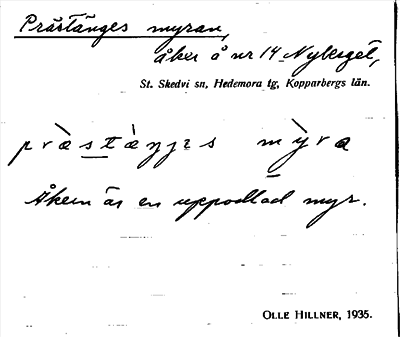 Prästänges myran,
åker å nr 14 Nyberget,
St. Skedvi sn, Hedemora tg, Kopparbergs län.
Åkern är en uppodlad myr.
OLLE HILLNER, 1935.